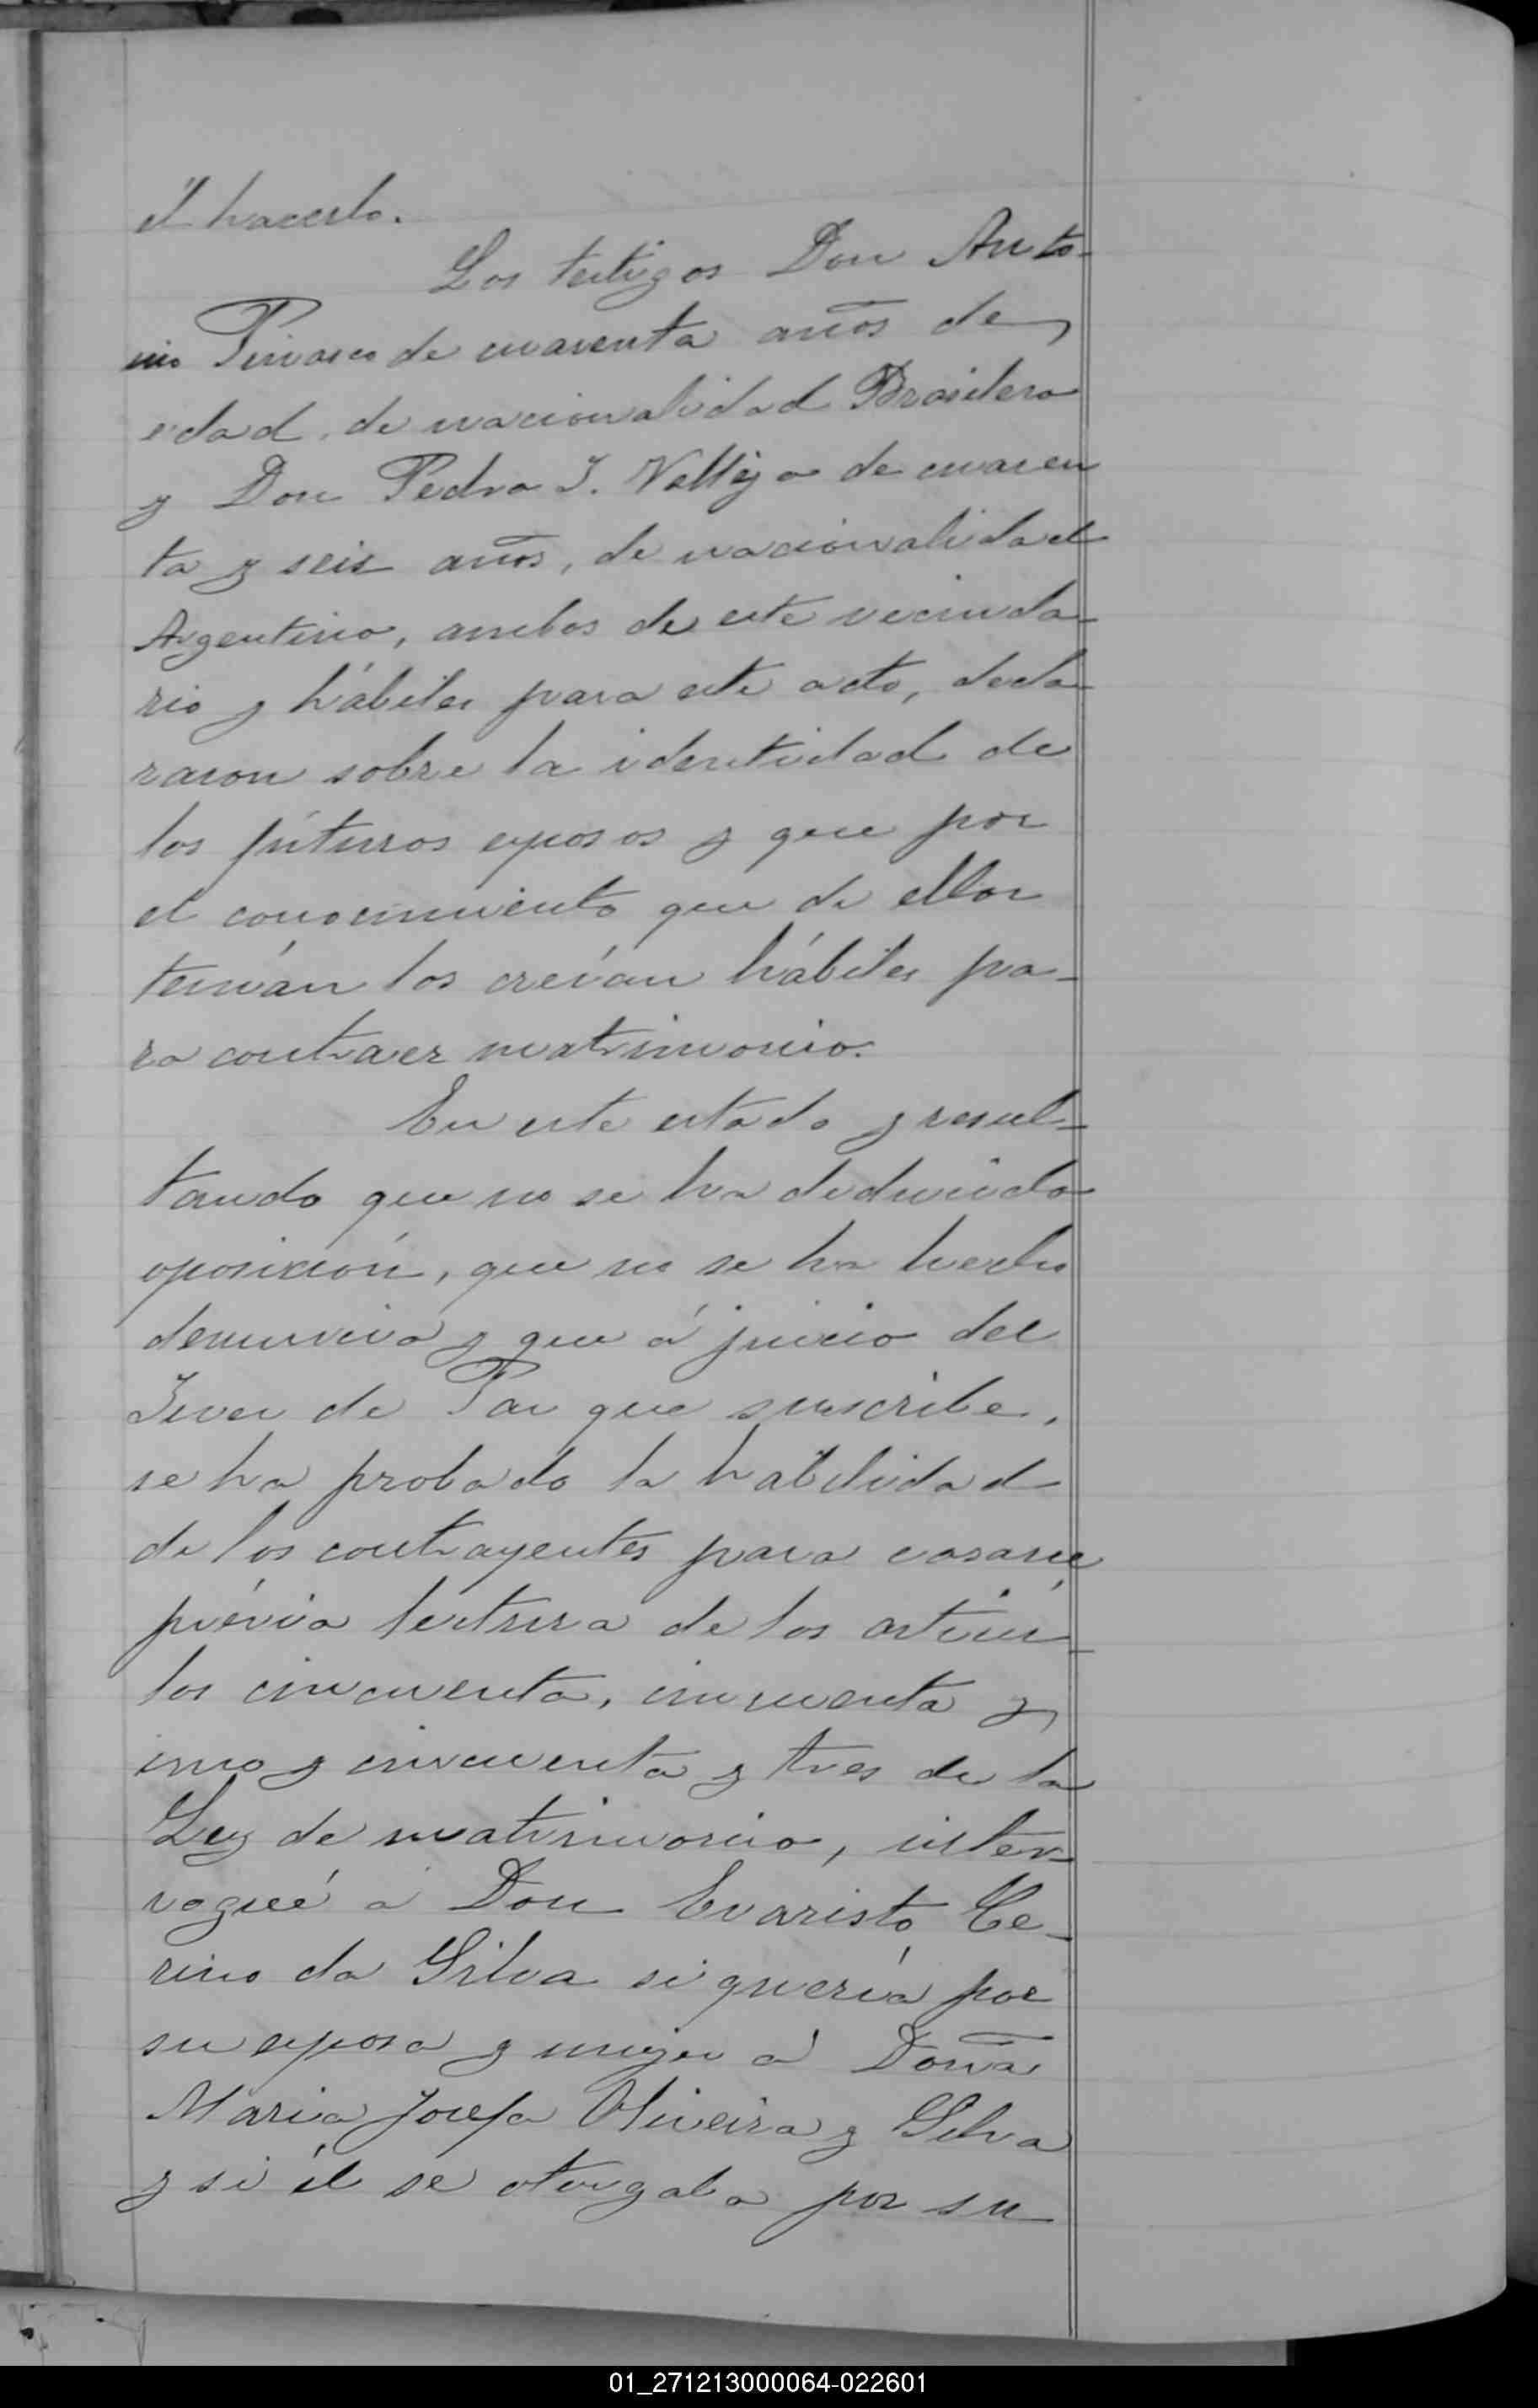 él hacerlo.
Los testigos Don Anto-
nio de cuarenta años de
edad, de nacionalidad Brasilera
y Don Pedro I. Vallejo de cuaren
ta y seis años, de nacionalidad
Argentino, ambos de este vecinda-
rio y hábiles para este acto, decla-
raron sobre la identidad de
los fúturos esposos y que por
el conocimiento que de ellos
tenían los creían hábiles pa-
ra contraer matrimonio.
En este estado y resul-
tando que no se ha deducido
oposición, que no se ha hecho
denuncia y que á juicio del
Juez de Paz que suscribe,
se ha probado la habilidad
de los contrayentes para casarse,
prévia lectura de los artícu-
los cincuenta, cincuenta y
uno y cincuenta y tres de la
Ley de matrimonio, inter-
rogué á Don Evaristo Ce-
rino da Silva si quería por
su esposa y mujer á Doña
Maria Josefa Oliveira y Silva
y si él se otorgaba por su
01_271213000064-022601